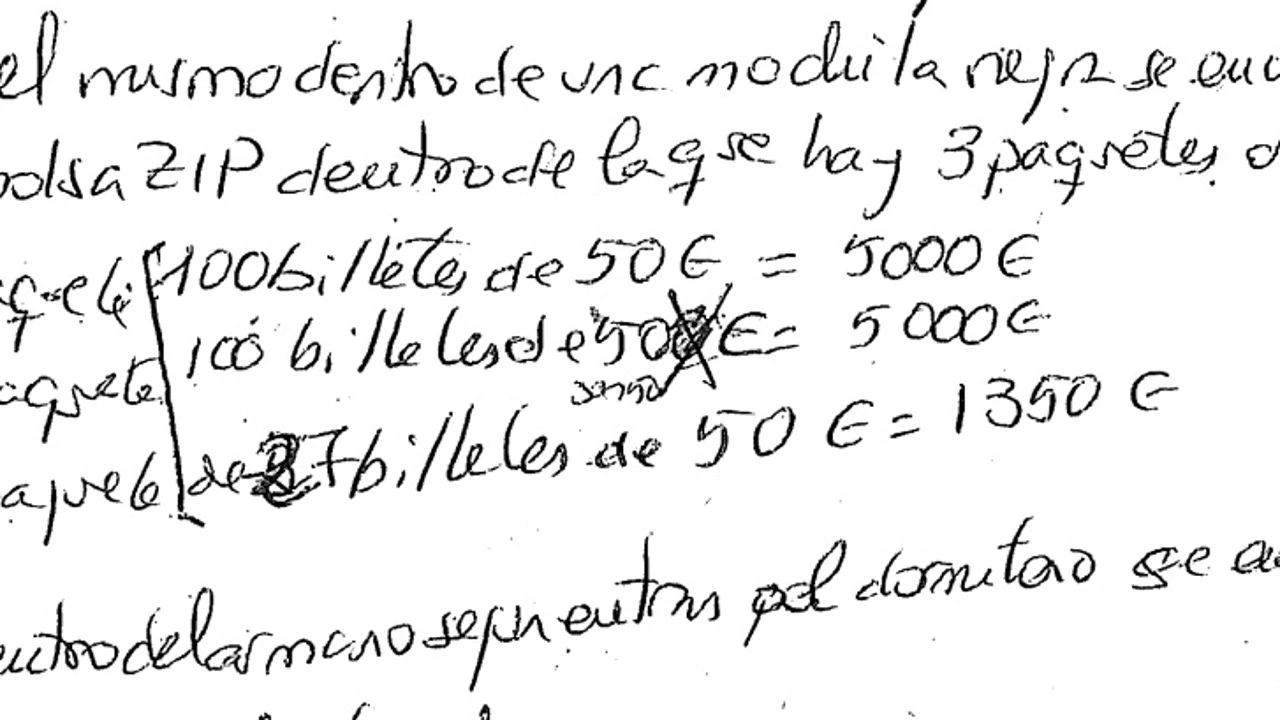 el mismo dentro de una mochila negra se encu
bolsa ZIP dentro de la q se hay 3 paquetes d
aquete 100 billetes de 50 € = 5000 €
aquete 100 billetes de 50 € = 5000 €
aquete de 27 billetes de 50 € = 1350 €
entro del armario segun entras pol dormitorio se en